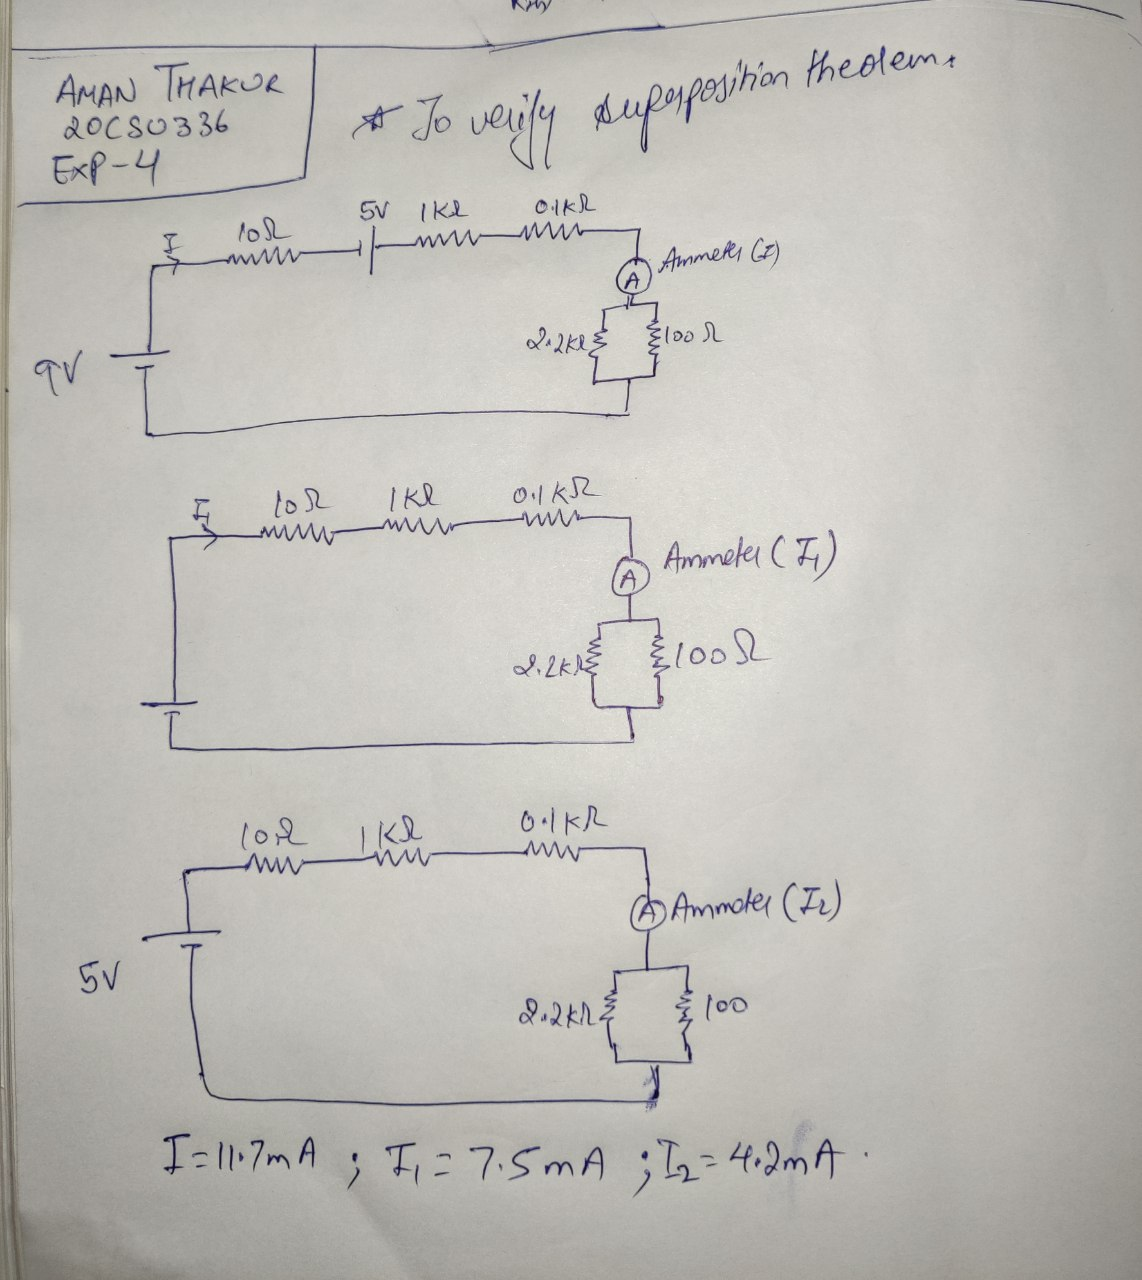 AMAN THAKUR
20CS0336
EXP-4
* To verify superposition theorem.
5V 1KΩ 0.1KΩ
I 10Ω
Ammeter (I)
A
2.2KΩ 100Ω
9V
I₁ 10Ω 1KΩ 0.1KΩ
Ammeter (I₁)
A
2.2KΩ 100Ω
10Ω 1KΩ 0.1KΩ
A Ammeter (I₂)
5V
2.2KΩ 100
I=11.7mA ; I₁=7.5mA ; I₂=4.2mA.